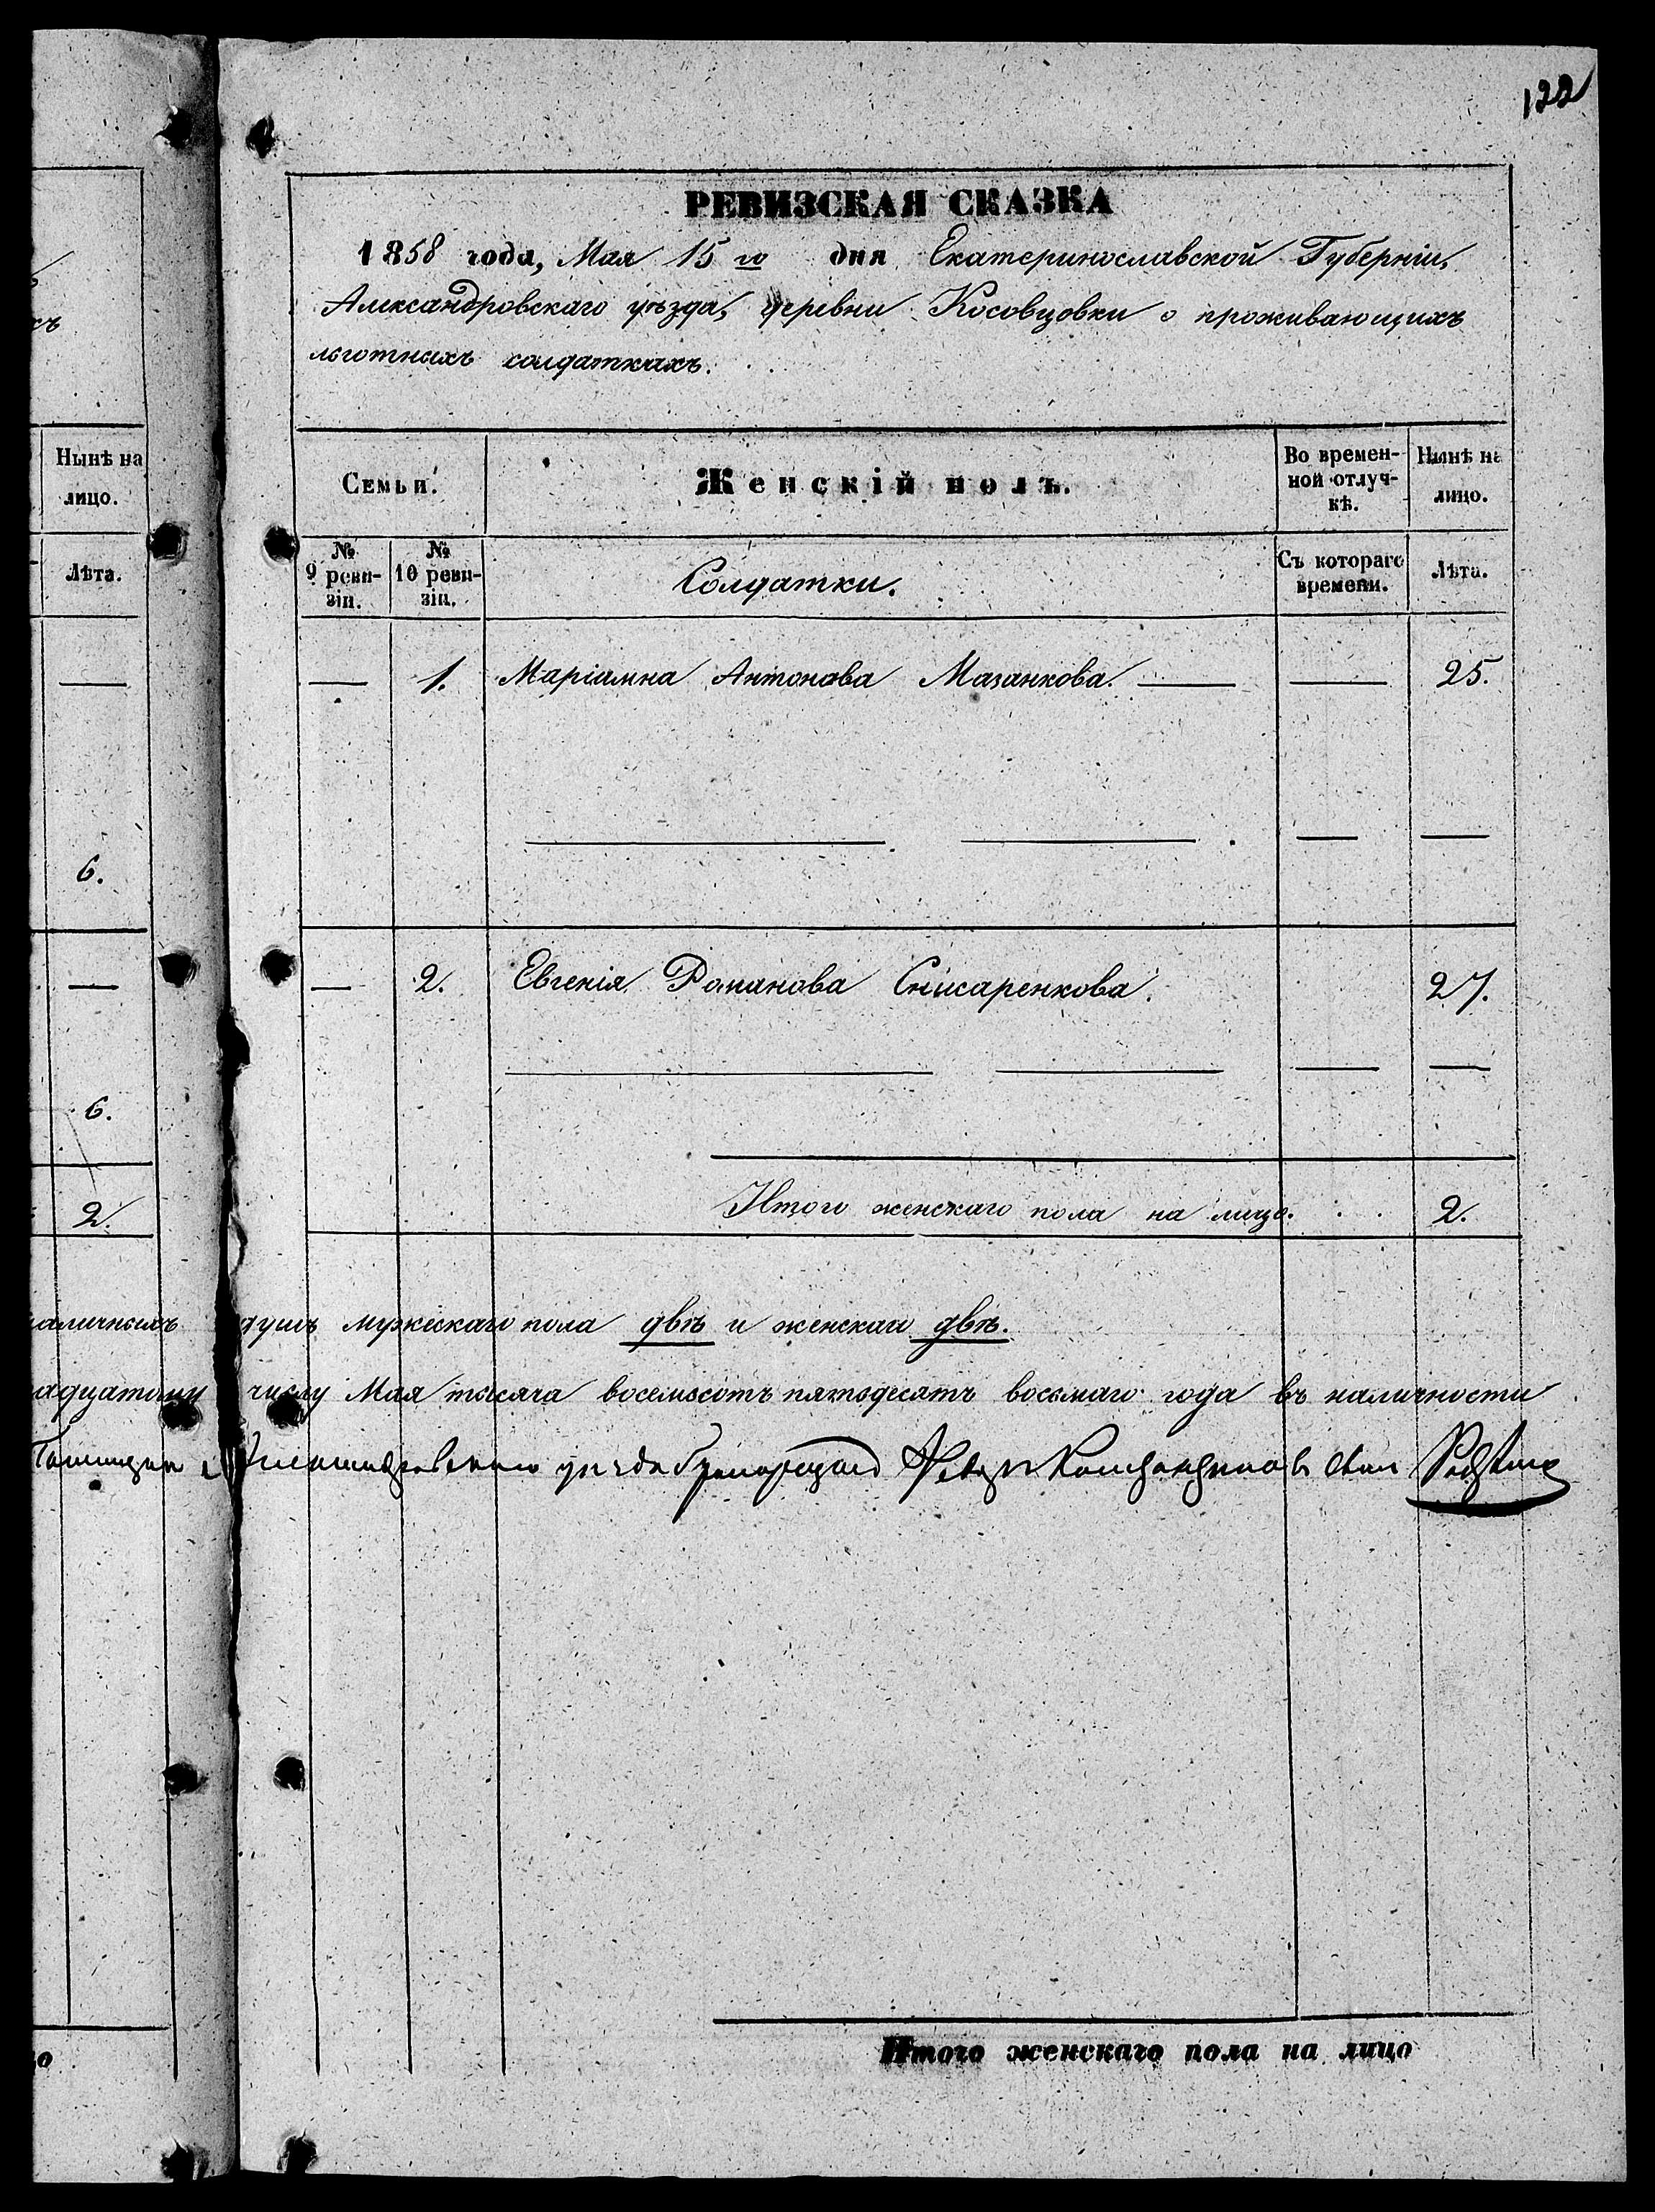 122
РЕВИЗСКАЯ СКАЗКА
1858 года, Мая 15 го дня Екатеринославской Губерніи,
Александровскаго уѣзда, деревни Косовцовки о проживающихъ
льготныхъ солдаткахъ.
Нынѣ на
лицо.
Лѣта.
6.
6.
2.
Семьи.
Женскій полъ.
Во времен-
ной отлуч-
кѣ.
Нынѣ на
лицо.
№
9 реви-
зіи.
№
10 реви-
зіи.
Солдатки.
Съ котораго
времени.
Лѣта.
1. Маріамна Антонова Мазанкова. 25.
2. Евгенія Романова Снисаренкова. 27.
Итого женскаго пола на лицо. . . 2.
аличныхъ душъ мужескаго пола двѣ и женскаго двѣ.
адцатому числу Мая тысяча восемьсотъ пятьдесятъ восьмаго года въ наличности
уѣзда
Итого женскаго пола на лицо